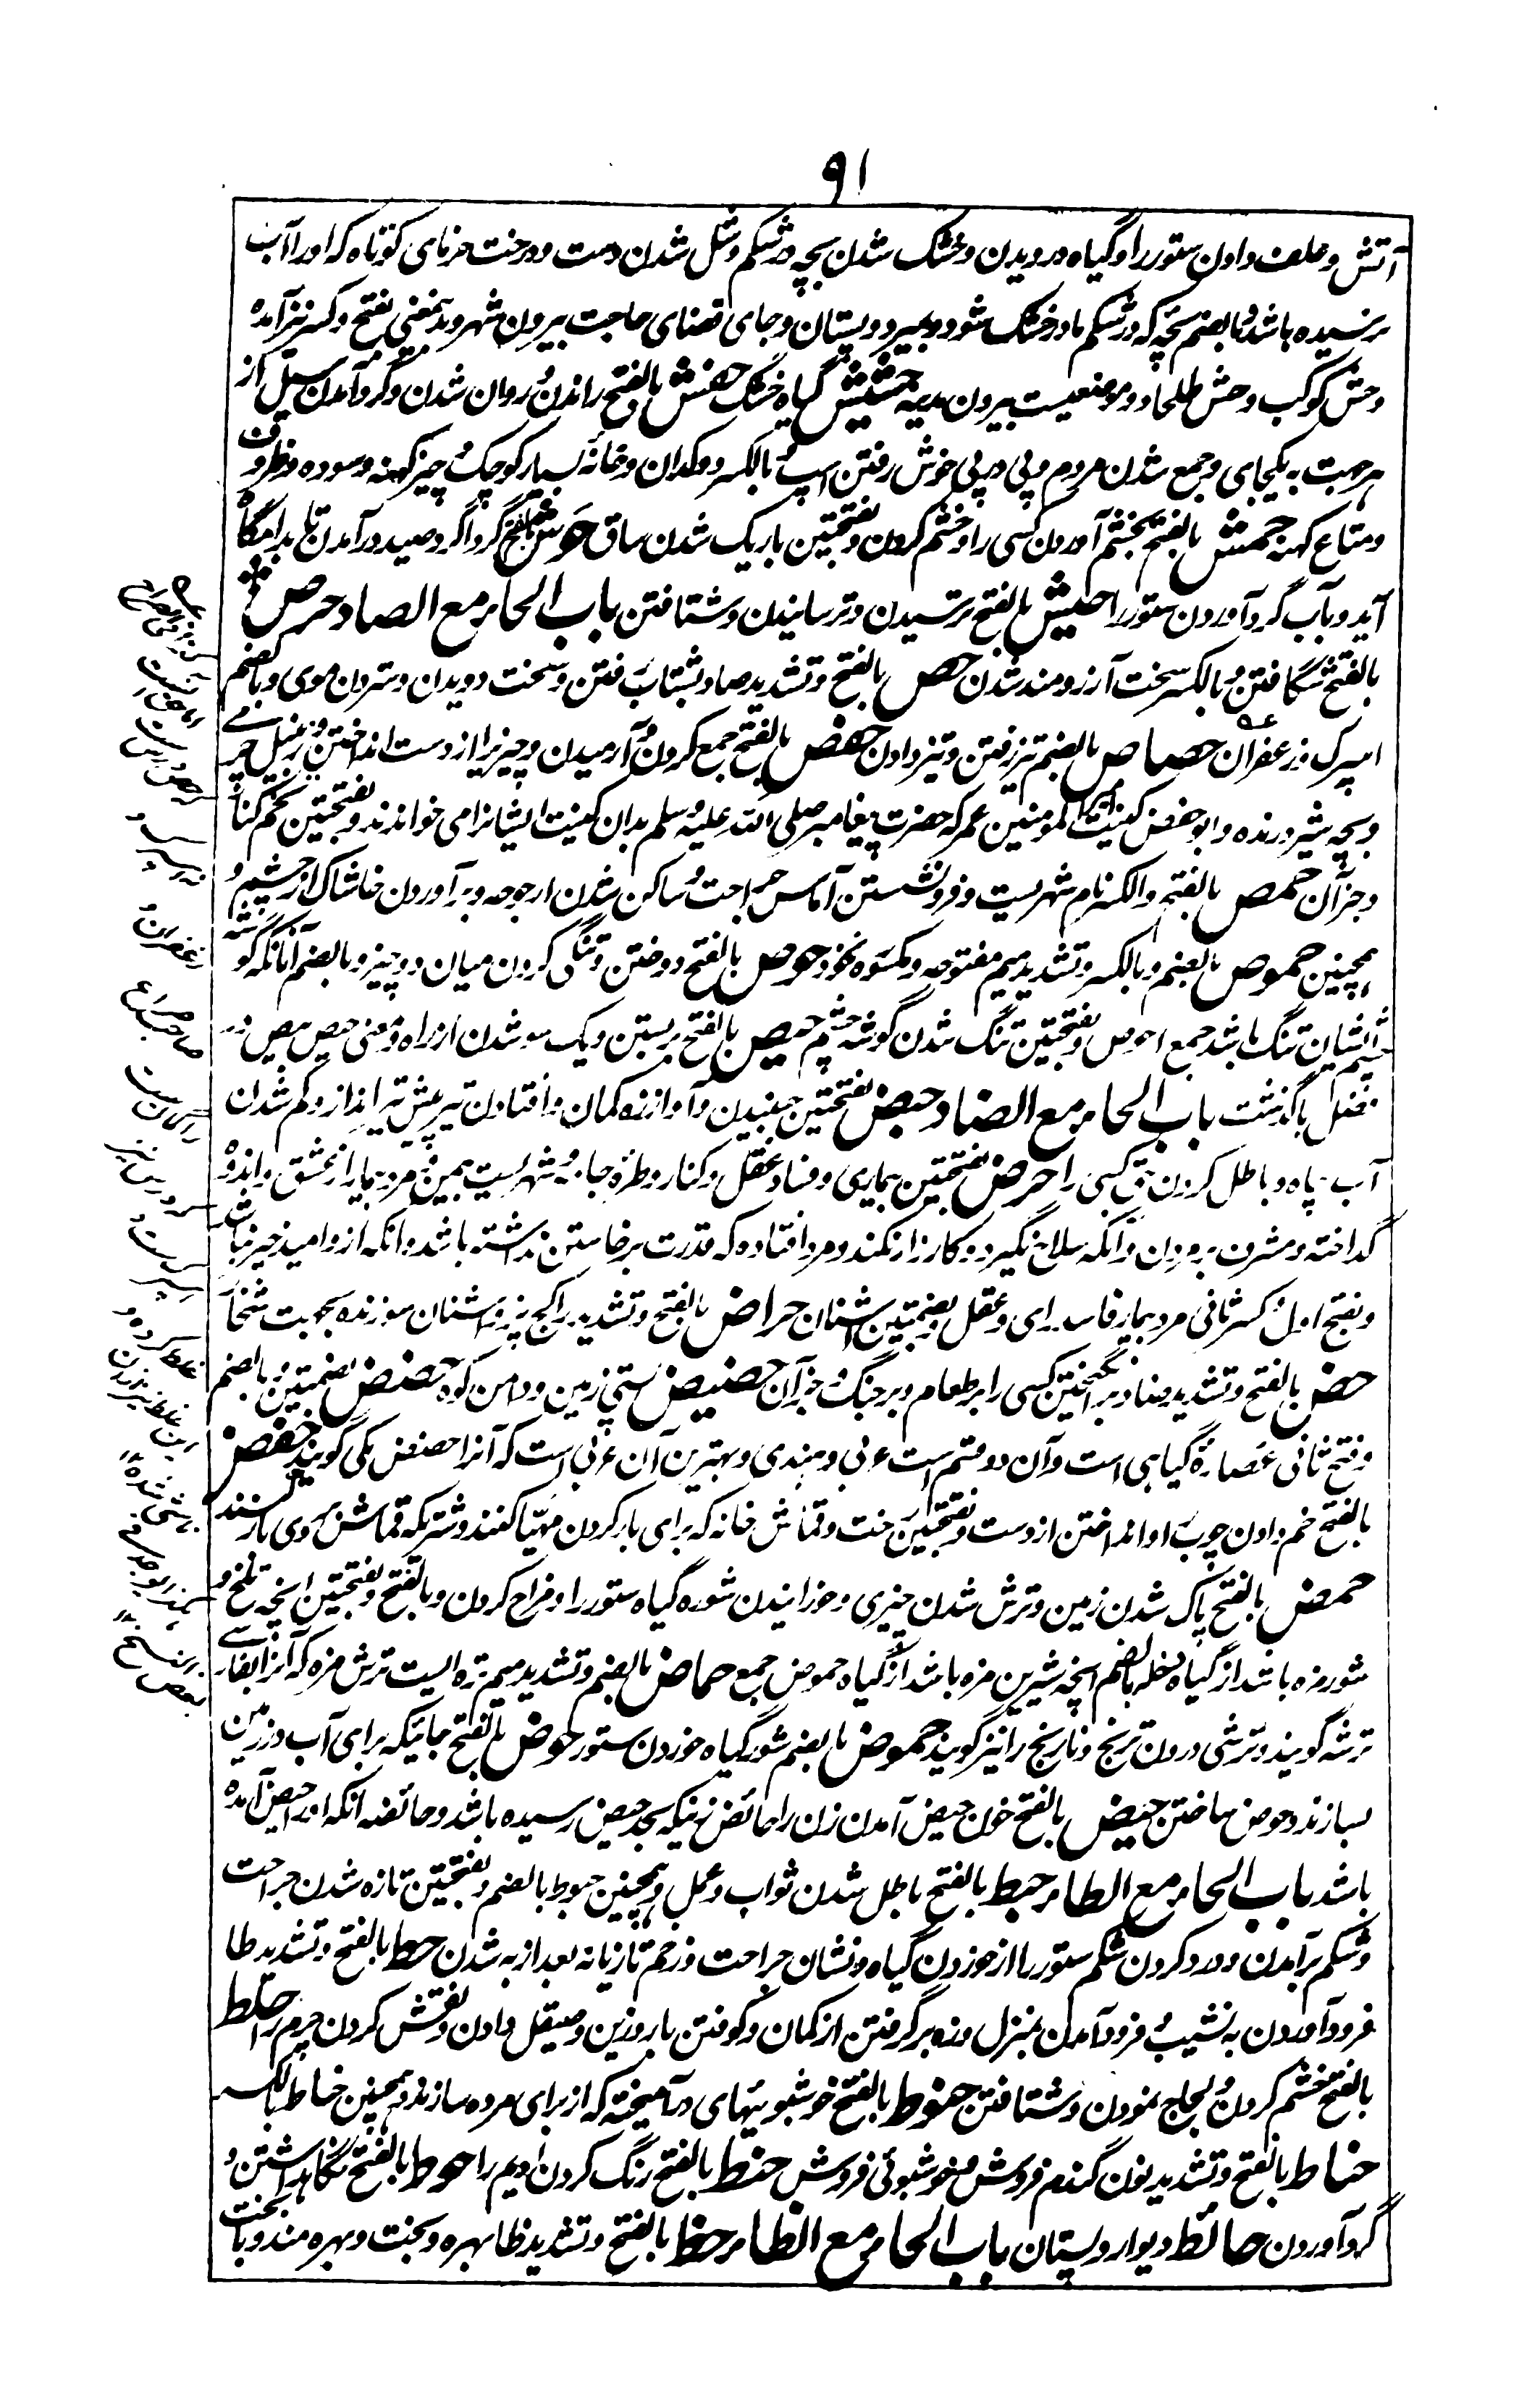 ۹۱
آتش و علف دادن ستور را و گیاه درویدن و خشک شدن بچه در شکم و شل شدن دست و درخت خرمای کوتاه که او را آب
نرسیده باشد و بالضم بچه که در شکم مادر خشک شود و بمیرد و بستان و جای قضای حاجت بیرون شهر و بدینمعنی بفتح و کسر نیز آمده
و حش کوکب و حش طلحه دو موضعیست بیرون مدینه حشیش گیاه خشک حفش بالفتح راندن و روان شدن و گرد آمدن سیل از
هر جهت به یکجای و جمع شدن مردم و پی در پی خوش رفتن اسپ و بالکسر دوکدان و خانهٔ بسیار کوچک و چیز کهنه و سوده و ظروف
و متاع کهنه حمش بالفتح بخشم آوردن کسی را و خشم کردن و بفتحتین باریک شدن ساق حوش بالفتح گرداگرد صید در آمدن تا بدامگاه
آید و بآب گرد آوردن ستور را حیش بالفتح ترسیدن و ترسانیدن و شتافتن باب الحاء مع الصاد حرص
بالفتح شگافتن و بالکسر سخت آرزومند شدن حص بالفتح و تشدید صاد بشتاب رفتن و سخت دویدن و ستردن موی و بالضم
اسپرک و زعفران حصاص بالضم تیز رفتن و تیز دادن حفص بالفتح جمع کردن و آرمیدن و چیزیرا از دست انداختن و زنبیل چرمی
و بچه شیر درنده و ابو حفص کنیت امیر المومنین عمر که حضرت پیغامبر صلی الله علیه و سلم بدان کنیت ایشانرا می خواندند و بفتحتین تخم کنار
و جز آن حمص بالفتح و الکسر نام شهریست و فرو نشستن آماس جراحت و ساکن شدن ارجوحه و بر آوردن خاشاک از چشم و
همچنین حموص بالضم و بالکسر و تشدید میم مفتوحه و مکسوره نخود حوص بالفتح دوختن و تنگی کردن میان دو چیز و بالضم آنانکه گوشه
چشم ایشان تنگ باشد جمع احوص و بفتحتین تنگ شدن گوشهٔ چشم حیص بالفتح برگشتن و یک سو شدن از راه و معنی حیص بیص در
فصل با گذشت باب الحاء مع الضاد حبض بفتحتین جنبیدن و آواز زه کمان و افتادن تیر پیش تیرانداز و کم شدن
آب چاه و باطل کردن حق کسی را حرض بفتحتین بیماری و فساد عقل و کنار و طرهٔ جامه و شهریست بیمن و مرد بیمار از عشق و اندوه
گداخته و مشرف بمردن و آنکه سلاح نگیرد و کارزار نکند و مرد افتاده که قدرت برخاستن نداشته باشد و آنکه از و امید خیر نباشد
و بفتح اول و کسر ثانی مرد بیمار فاسد رای و عقل و بضمتین اشنان حراض بالفتح و تشدید را گچ پز و اشنان سوزنده بجهت شخار
حض بالفتح و تشدید ضاد بر انگیختن کسی را بر طعام و بر جنگ و جز آن حضیض پستی زمین و دامن کوه حضض بضمتین و بالضم
و فتح ثانی عصارهٔ گیاهی است و آن دو قسم است عربی و هندی و بهترین آن عربی است که آنرا حضض مکی گویند حفض
بالفتح خم دادن چوب و انداختن از دست و بفتحتین رخت و قماش خانه که برای بار کردن مهیا کنند و شتریکه قماش بروی بار کنند
حمض بالفتح پاک شدن زمین و ترش شدن چیزی و خورانیدن شوره گیاه ستور را و فراخ کردن و بالفتح و بفتحتین آنچه تلخ و
شور مزه باشد از گیاه و خله بالضم آنچه شیرین مزه باشد از گیاه حموض جمع حماض بالضم و تشدید میم تره ایست ترش مزه که آنرا بفارسی
ترشه گویند و ترشی درون ترنج و نارنج را نیز گویند حموض بالضم شور گیاه خوردن ستور حوض بالفتح جائیکه برای آب در زمین
بسازند و حوض ساختن حیض بالفتح خون حیض آمدن زن را حائض زنیکه بحد حیض رسیده باشد و حائضه آنکه او را حیض آمده
باشد باب الحاء مع الطاء حبط بالفتح باطل شدن ثواب و عمل و همچنین حبوط بالضم و بفتحتین تازه شدن جراحت
و شکم برآمدن و درد کردن شکم ستور را از خوردن گیاه و نشان جراحت و زخم تازیانه بعد از به شدن حط بالفتح و تشدید طا
فرود آوردن به نشیب و فرود آمدن بمنزل و زه بر گرفتن از کمان و کوفتن بار و زین و صیقل دادن و نقش کردن چرم را حلط
بالفتح خشم کردن و لجاج نمودن و شتافتن حنوط بالفتح خوشبوئیهای در آمیخته که از برای مرده سازند و همچنین حناط بالکسر
حناط بالفتح و تشدید نون گندم فروش و خوشبوئی فروش حنط بالفتح رنگ کردن ادیم را حوط بالفتح نگاهداشتن و
گرد آوردن حائط دیوار و بستان باب الحاء مع الظاء حظ بالفتح و تشدید ظا بهره و بخت و بهره مند و با بخت